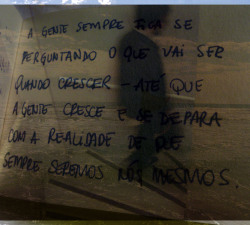 A GENTE SEMPRE FICA SE
PERGUNTANDO O QUE VAI SER
QUANDO CRESCER - ATÉ QUE
A GENTE CRESCE E SE DEPARA
COM A REALIDADE DE QUE
SEMPRE SEREMOS NÓS MESMOS.